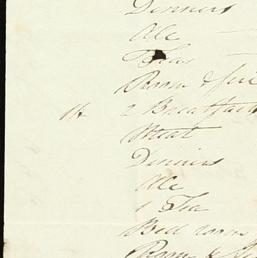 Dinners
Ale
Teas
Room & fire
14 2 Breakfasts
Meat
Dinners
Ale
1 Tea
Bed room
Room &